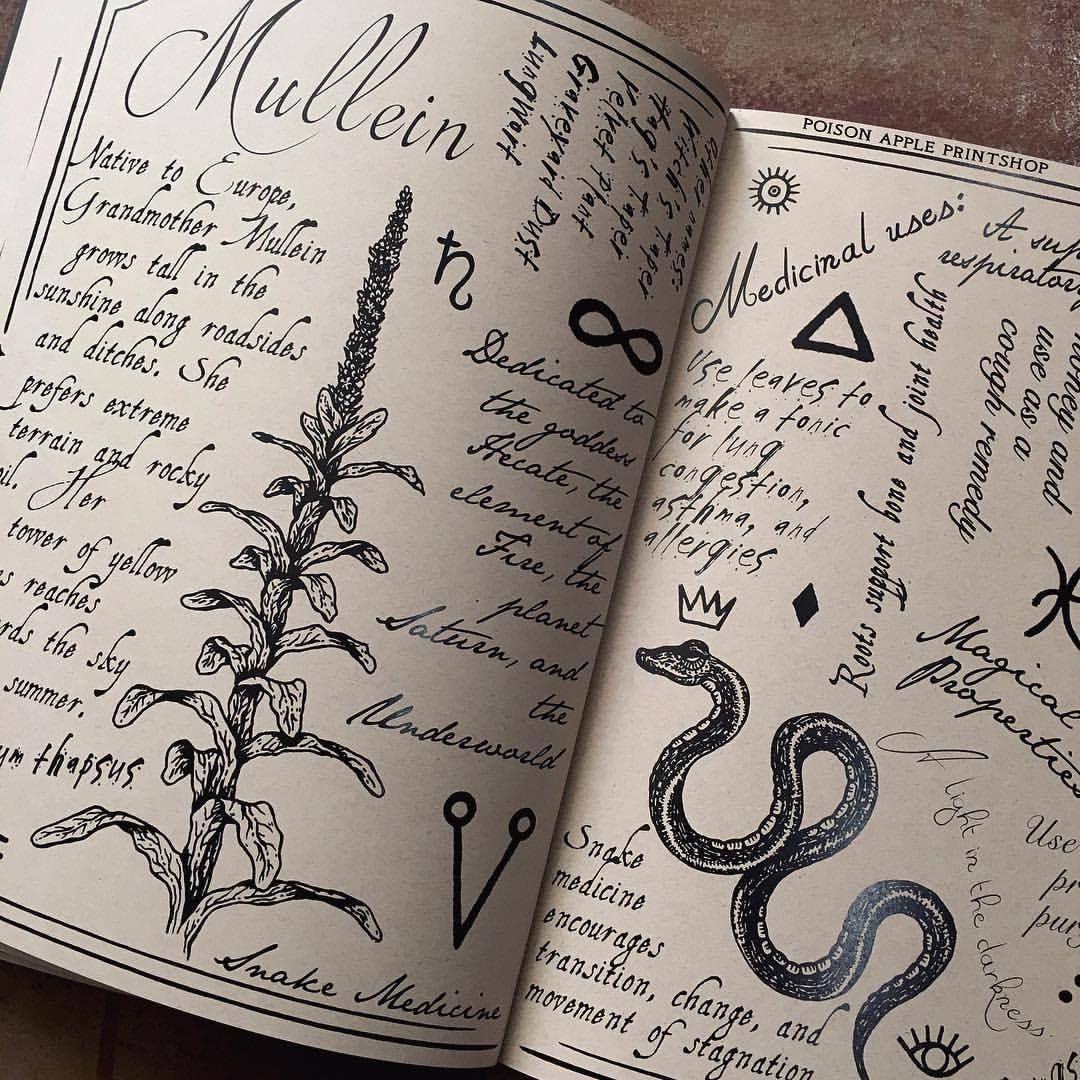 Mullein
Native to Europe,
Grandmother Mullein
grows tall in the
sunshine along roadsides
and ditches. She
prefers extreme
terrain and rocky
Her
tower of yellow
reaches
the sky
summer.
thapsus
other names:
Witch's Taper
Hag's Taper
Velvet Plant
Graveyard Dust
Lungwort
Dedicated to
the goddess
Hecate, the
element of
Fire, the
planet
Saturn, and
the
Underworld
Snake Medicine
POISON APPLE PRINTSHOP
Medicinal uses:
A
respiratory
Use leaves to
make a tonic
for lung
congestion,
asthma, and
allergies
Roots support bone and joint health
honey and
use as a
cough remedy
Magical
Properties
A light in the darkness
Use
Snake
medicine
encourages
transition, change, and
movement of stagnation